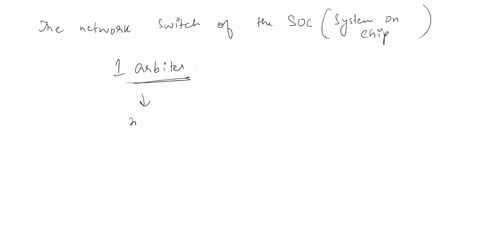 The network switch of the SOC (System on chip)
1 arbiter
↓
n